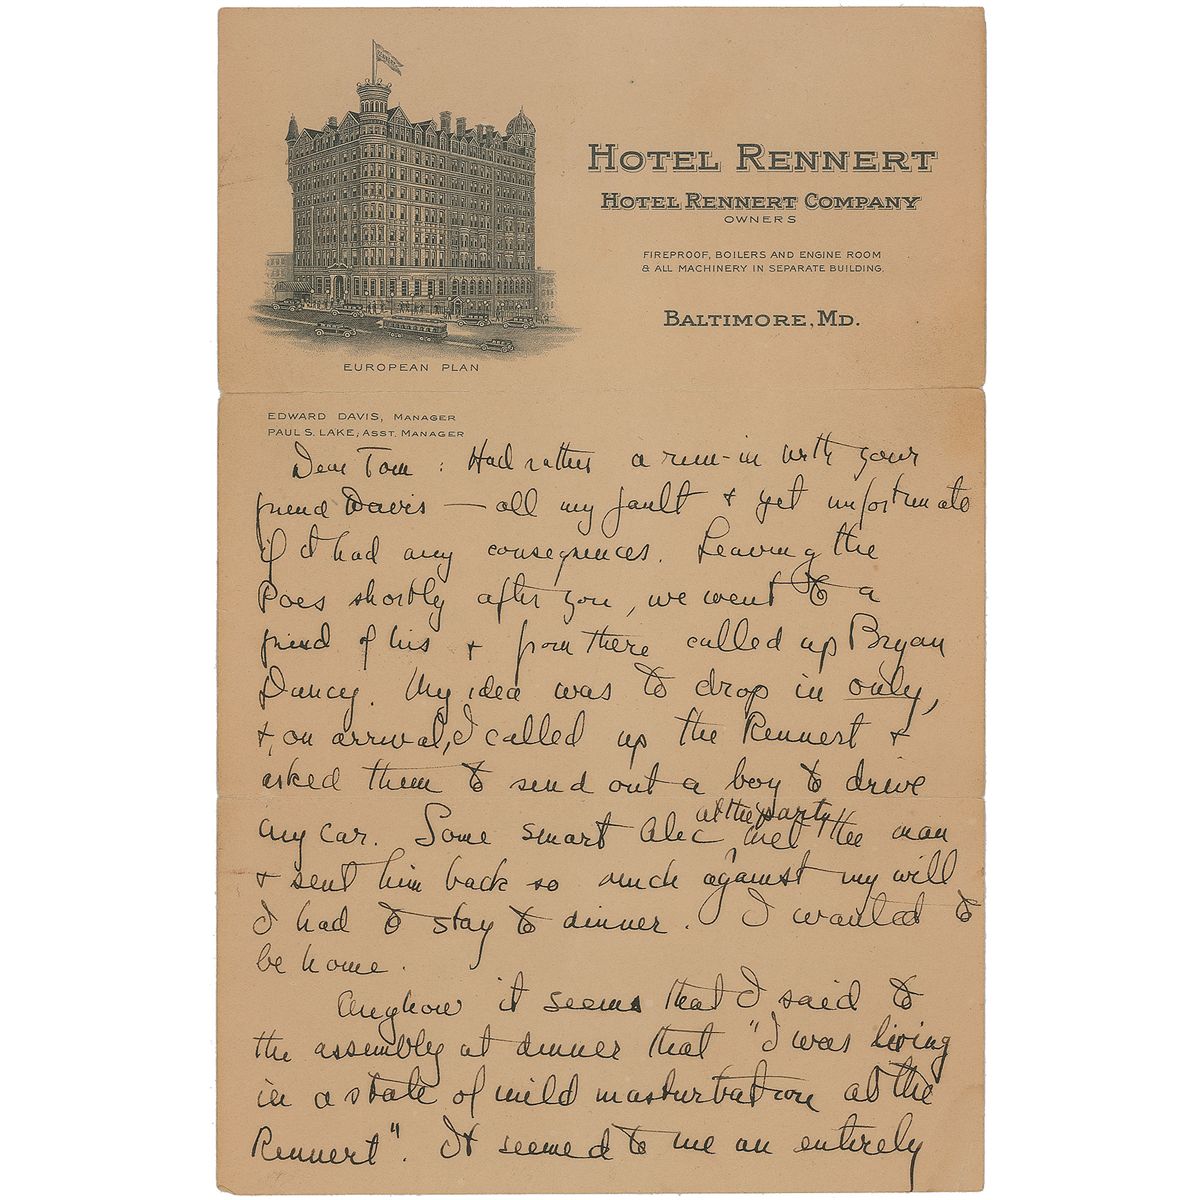 HOTEL RENNERT
HOTEL RENNERT COMPANY
OWNERS
FIREPROOF, BOILERS AND ENGINE ROOM
& ALL MACHINERY IN SEPARATE BUILDING.
BALTIMORE, MD.
EUROPEAN PLAN
EDWARD DAVIS, MANAGER
PAUL S. LAKE, ASST. MANAGER
Dear Tom : Had rather a run-in with your
friend Davis — all my fault & yet unfortunate
if it had any consequences. Leaving the
Poes shortly after you, we went to a
friend of his & from there called up Bryan
Dancy. My idea was to drop in only,
&, on arrival, I called up the Rennert &
asked them to send out a boy to drive
my car. Some smart alec at the party met the man
& sent him back so much against my will
I had to stay to dinner. I wanted to
be home.
Anyhow it seems that I said to
the assembly at dinner that "I was living
in a state of mild masturbation at the
Rennert". It seemed to me an entirely